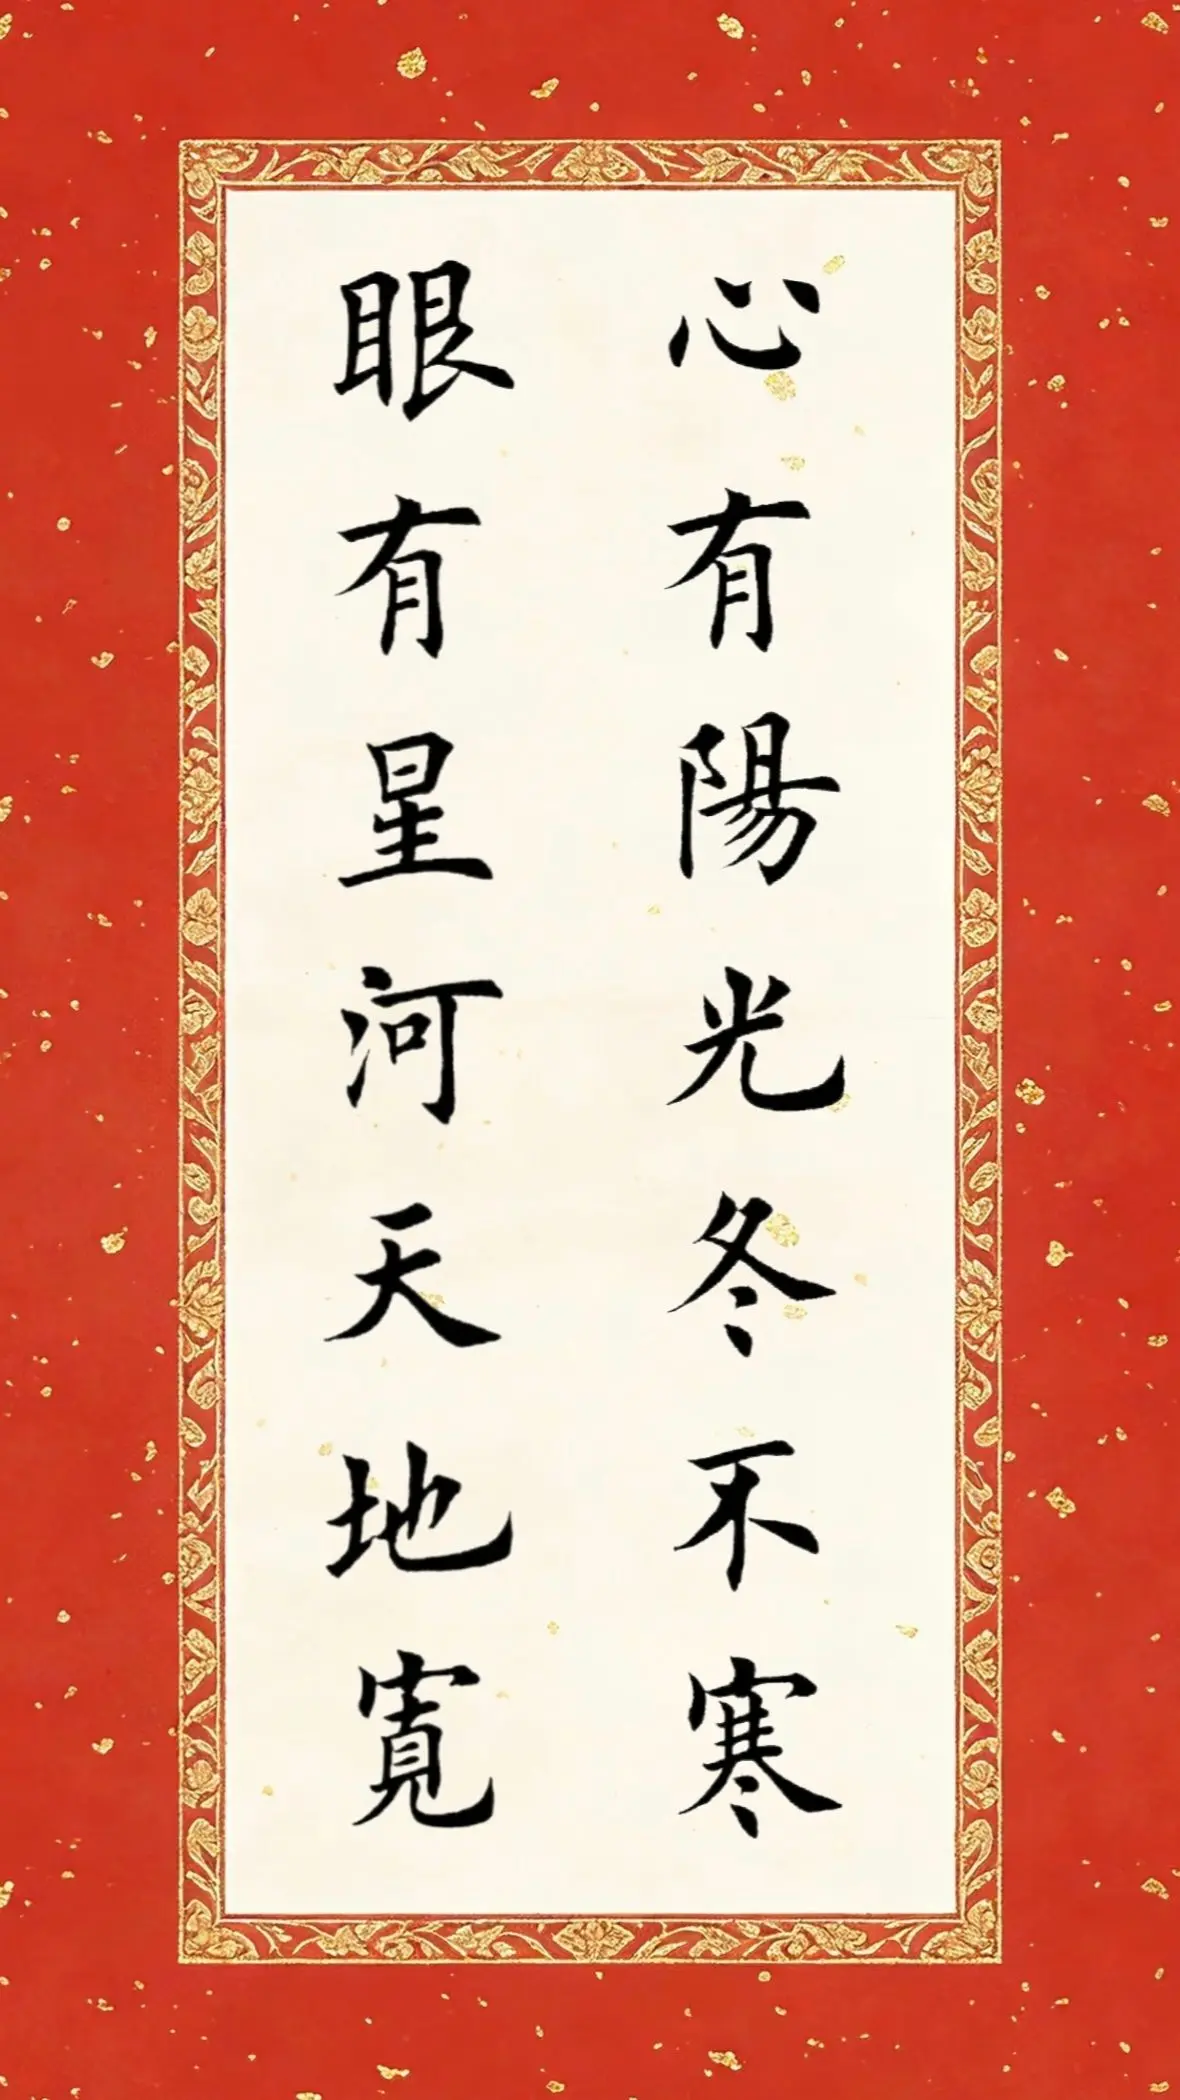 心有陽光冬不寒
眼有星河天地寬